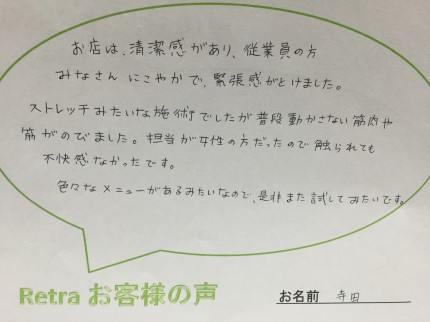 お店は、清潔感があり、従業員の方
みなさんにこやかで、緊張感がとけました。
ストレッチみたいな施術でしたが普段動かさない筋肉や
筋がのびました。担当が女性の方だったので触られても
不快感なかったです。
色々なメニューがあるみたいなので、是非また試してみたいです。
Retra お客様の声
お名前 寺田